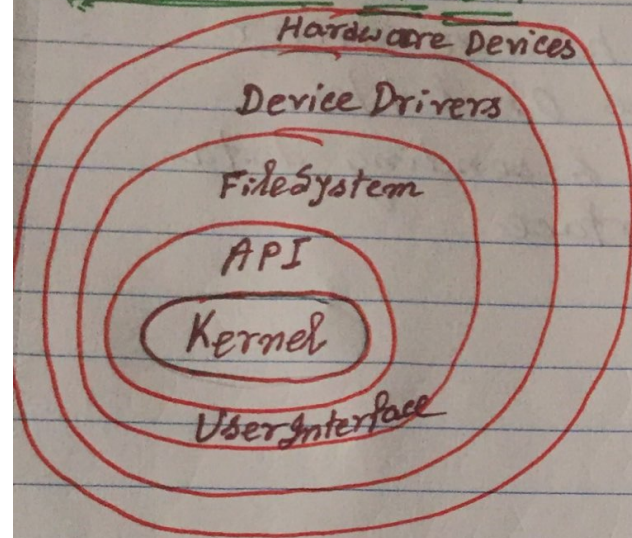 Hardware Devices
Device Drivers
FileSystem
API
Kernel
UserInterface